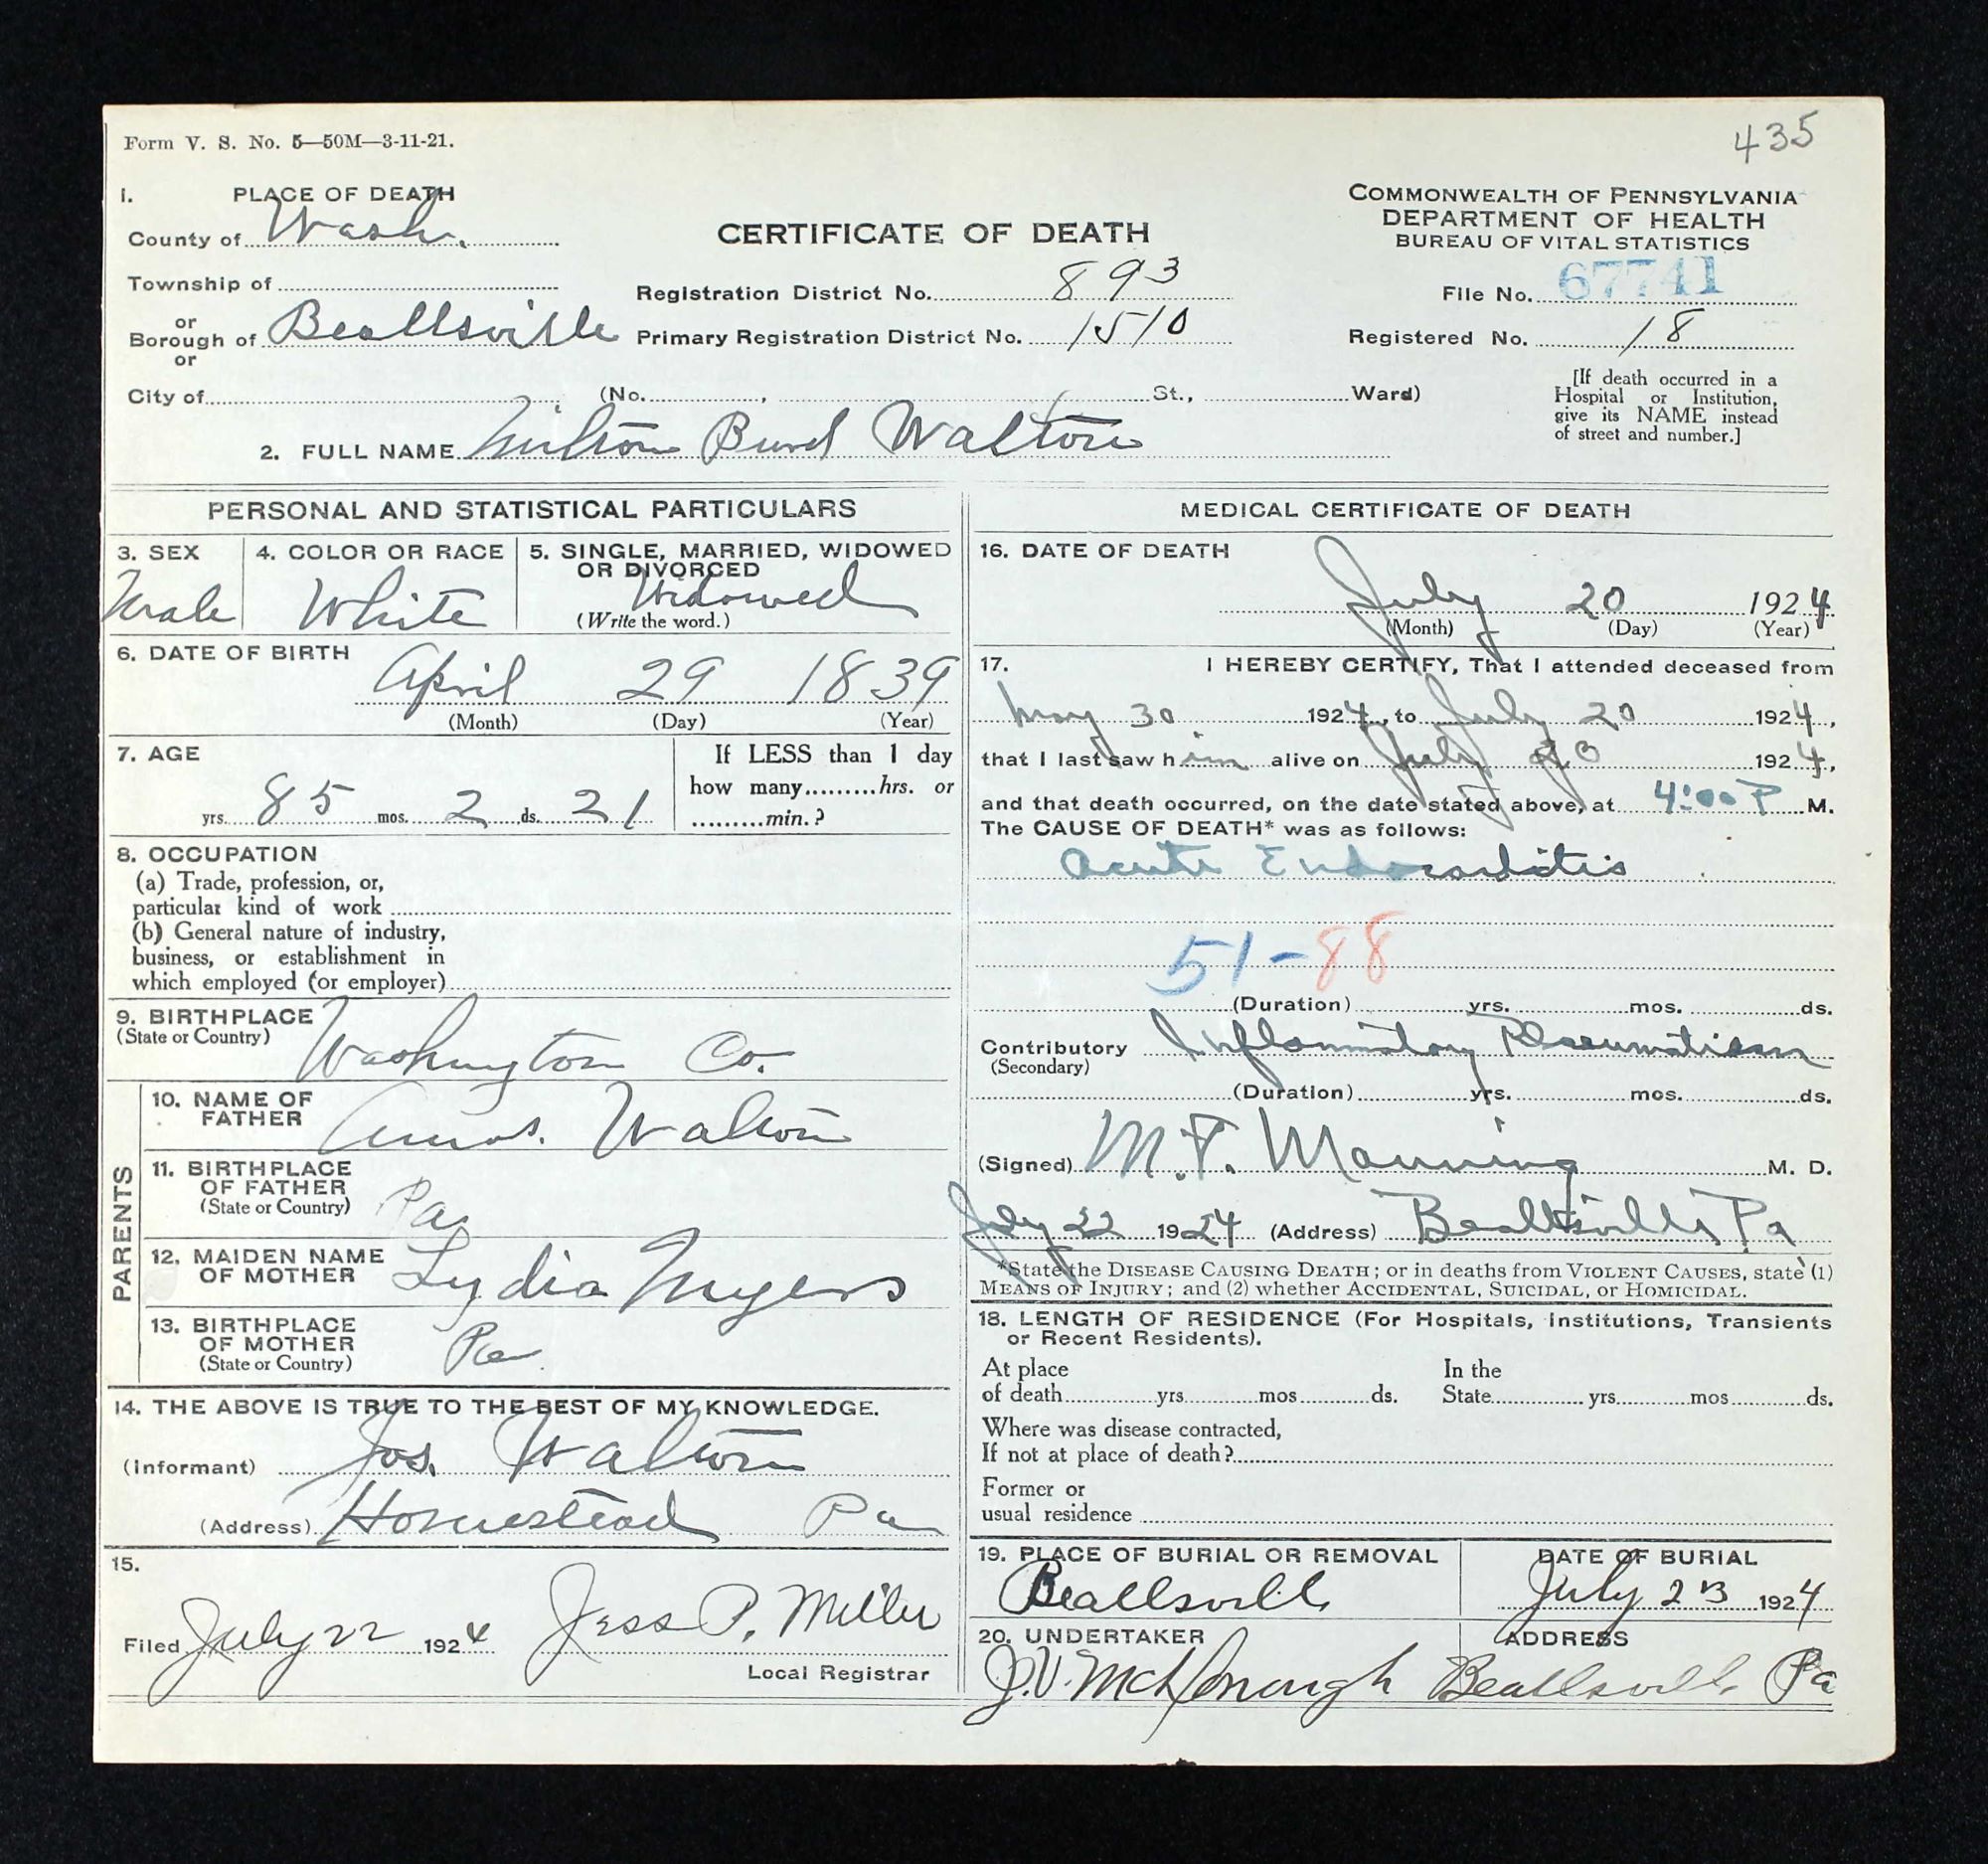 Form V. S. No. 5—50M—3-11-21.
435
1. PLACE OF DEATH
County of Wash.
Township of
or
Borough of Beallsville
or
City of (No. , St., Ward)
CERTIFICATE OF DEATH
Registration District No. 893
Primary Registration District No. 1510
COMMONWEALTH OF PENNSYLVANIA
DEPARTMENT OF HEALTH
BUREAU OF VITAL STATISTICS
File No. 67741
Registered No. 18
[If death occurred in a
Hospital or Institution,
give its NAME instead
of street and number.]
2. FULL NAME Milton Burd Walton
PERSONAL AND STATISTICAL PARTICULARS
3. SEX
Male
4. COLOR OR RACE
White
5. SINGLE, MARRIED, WIDOWED
OR DIVORCED
Widowed
(Write the word.)
6. DATE OF BIRTH
April 29 1839
(Month) (Day) (Year)
7. AGE
yrs. 85 mos. 2 ds. 21
If LESS than 1 day
how many.........hrs. or
.........min.?
8. OCCUPATION
(a) Trade, profession, or,
particular kind of work
(b) General nature of industry,
business, or establishment in
which employed (or employer)
9. BIRTHPLACE
(State or Country)
Washington Co.
PARENTS
10. NAME OF
FATHER
Amos. Walton
11. BIRTHPLACE
OF FATHER
(State or Country)
Pa
12. MAIDEN NAME
OF MOTHER
Lydia Myers
13. BIRTHPLACE
OF MOTHER
(State or Country)
Pa
14. THE ABOVE IS TRUE TO THE BEST OF MY KNOWLEDGE.
(Informant) Jos. Walton
(Address) Homestead Pa
15.
Filed July 22 1924 Jess P. Miller
Local Registrar
MEDICAL CERTIFICATE OF DEATH
16. DATE OF DEATH
July 20 1924
(Month) (Day) (Year)
17. I HEREBY CERTIFY, That I attended deceased from
May 30 1924, to July 20 1924,
that I last saw him alive on July 20 1924,
and that death occurred, on the date stated above, at 4:00 P M.
The CAUSE OF DEATH* was as follows:
Acute Endocarditis
51-88
(Duration) yrs. mos. ds.
Contributory Inflammatory Rheumatism
(Secondary)
(Duration) yrs. mos. ds.
(Signed) M. F. Manning M. D.
July 22 1924 (Address) Beallsville Pa
*State the DISEASE CAUSING DEATH; or in deaths from VIOLENT CAUSES, state (1)
MEANS OF INJURY; and (2) whether ACCIDENTAL, SUICIDAL, or HOMICIDAL.
18. LENGTH OF RESIDENCE (For Hospitals, Institutions, Transients
or Recent Residents).
At place
of death yrs mos ds.
In the
State yrs mos ds.
Where was disease contracted,
If not at place of death?
Former or
usual residence
19. PLACE OF BURIAL OR REMOVAL
Beallsville
DATE OF BURIAL
July 23 1924
20. UNDERTAKER
J.V. McDonough
ADDRESS
Beallsville Pa